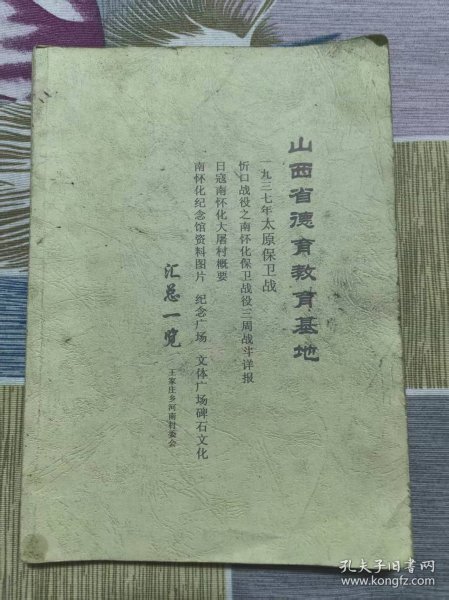 山西省德育教育基地
一九三七年太原保卫战
忻口战役之南怀化保卫战役三周战斗详报
日寇南怀化大屠村概要
南怀化纪念馆资料图片 纪念广场 文体广场碑石文化
汇总一览
王家庄乡河南村委会
孔夫子旧书网
www.kongfz.com